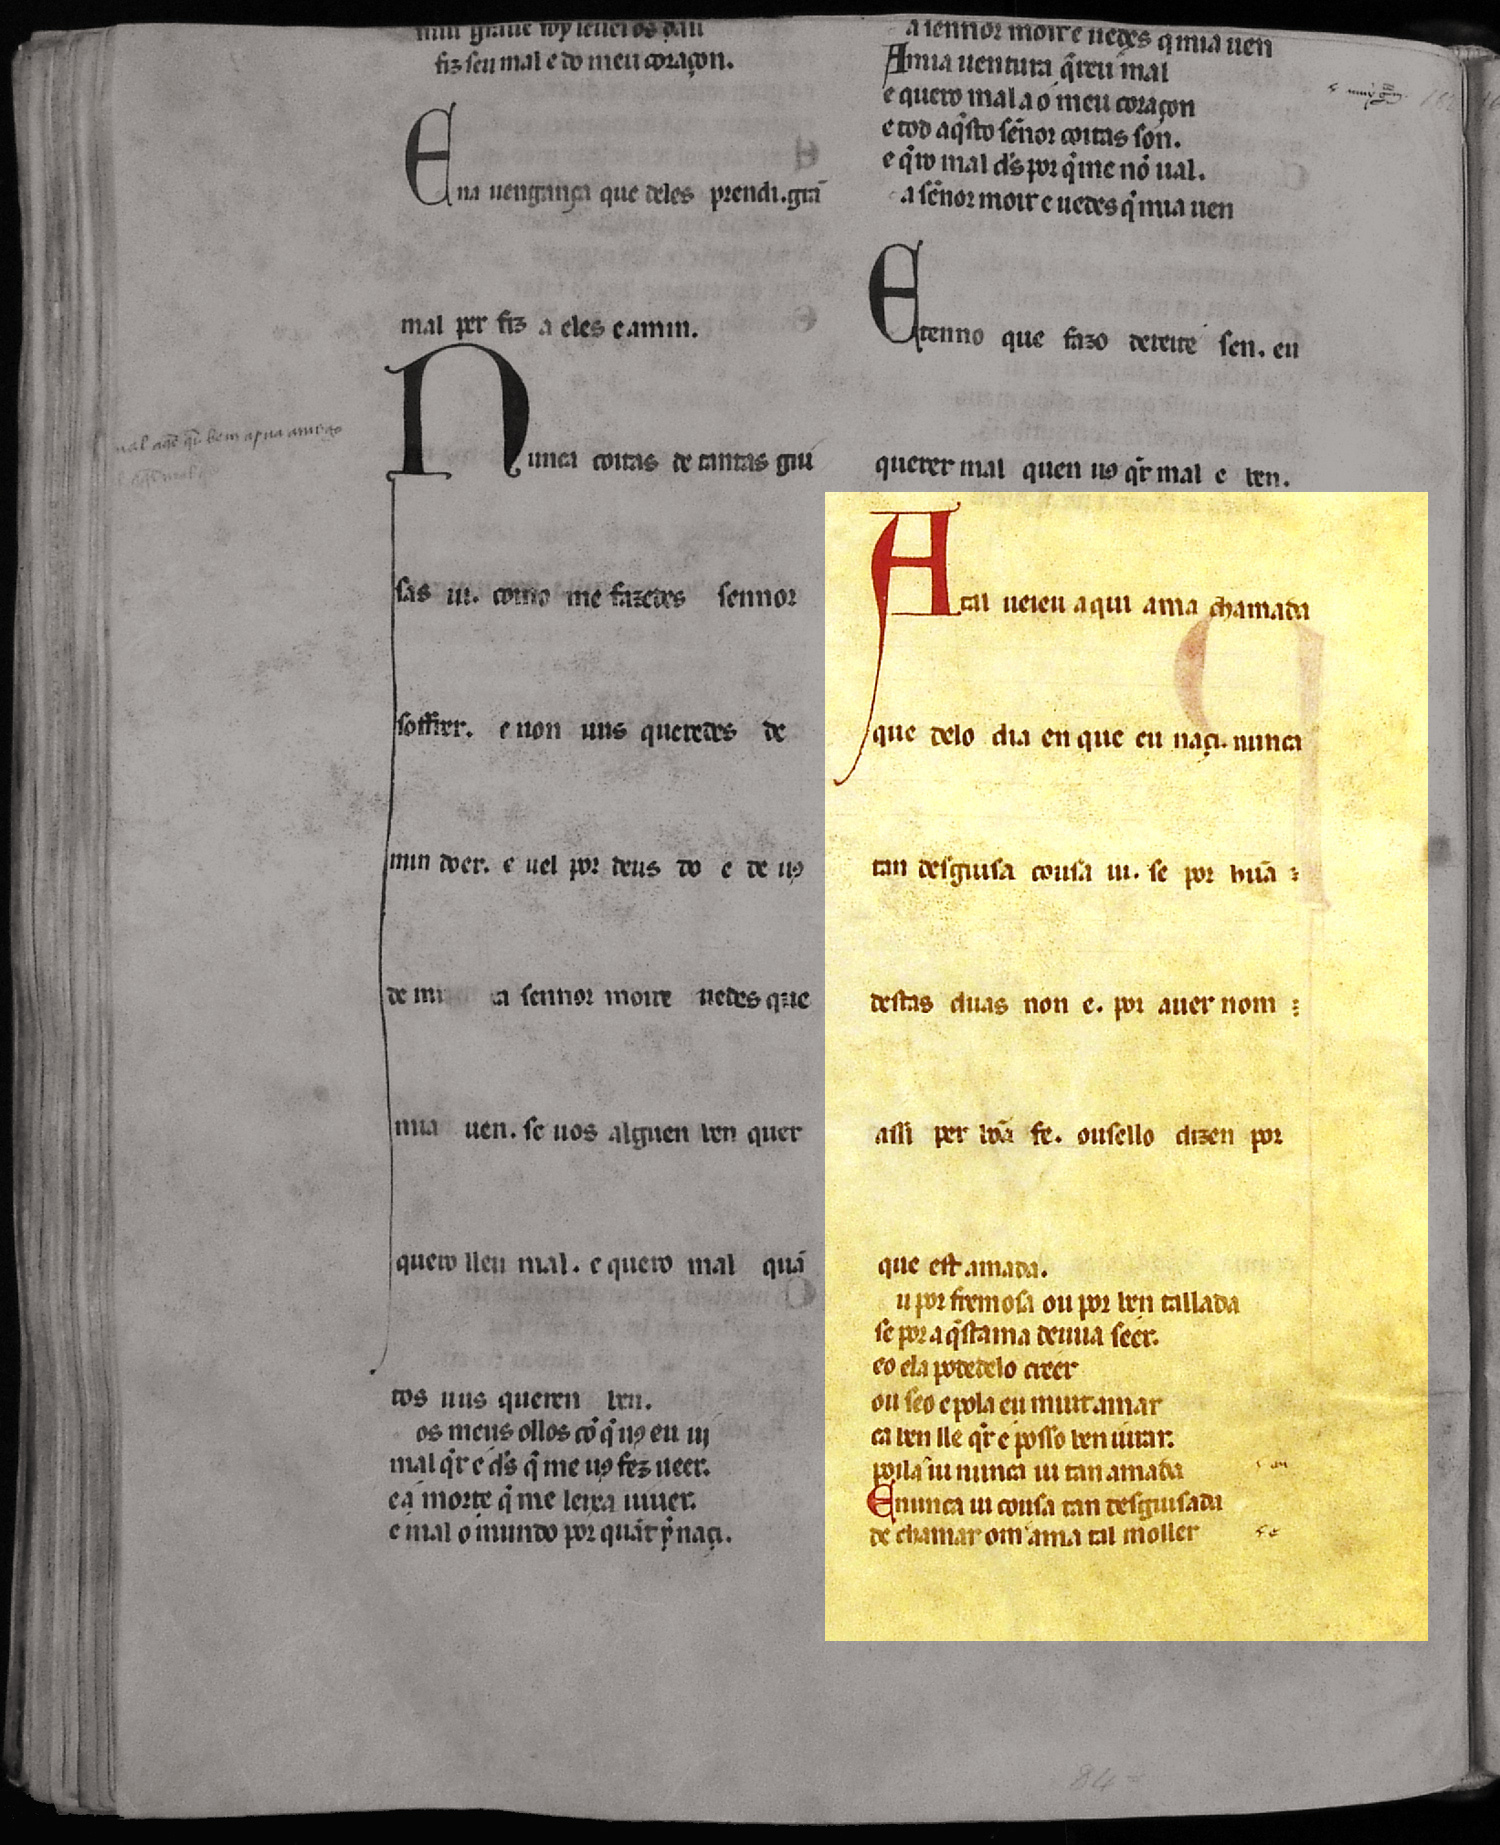 min graue foy leuei os dali
fiz seu mal e do meu coraçon.
Ena uengança que deles prendi. grã
mal per fiz a eles e amin.
Nunca coitas de tantas gui
sas ui. como me fazedes sennor
soffrer. e non uus queredes de
min doer. e uel por deus do e de uꝯ
de mi a sennor moire uedes que
mia uen. se uos alguen ben quer
quero lleu mal. e quero mal quã
tos uus queren ben.
os meus ollos cõ q̃ uꝯ eu ui
mal q̃r e d̃s q̃ me uꝯ fez ueer.
e á morte q̃ me leixa uiuer.
e mal o mundo por quãt ẏ naçi.
a sennor moir e uedes q mia uen
A mia uentura q̃reu mal
e quero mal a o meu coraçon
e tod aq̃sto sẽnor coitas son.
e q̃ro mal d̃s por q̃ me nõ ual.
a sẽnor moir e uedes q̃ mia uen
E tenno que fazo dereit e sen. eu
querer mal quen uꝯ q̃r mal e ben.
Atal ueieu aqui ama chamada
que delo dia en que eu naçi. nunca
tan desguisa cousa ui. se por hũa
destas duas non e. por auer nom
assi per bõa fe. ousello dizen por
que est amada.
u por fremosa ou por ben tallada
se por aq̃stama deuua seer.
eo ela podedelo creer
ou seo e pola eu muit amar
ca ben lle q̃r e posso ben iurar.
poila ui nunca ui tan amada
E nunca ui cousa tan desguisada
de chamar om ama tal moller
84